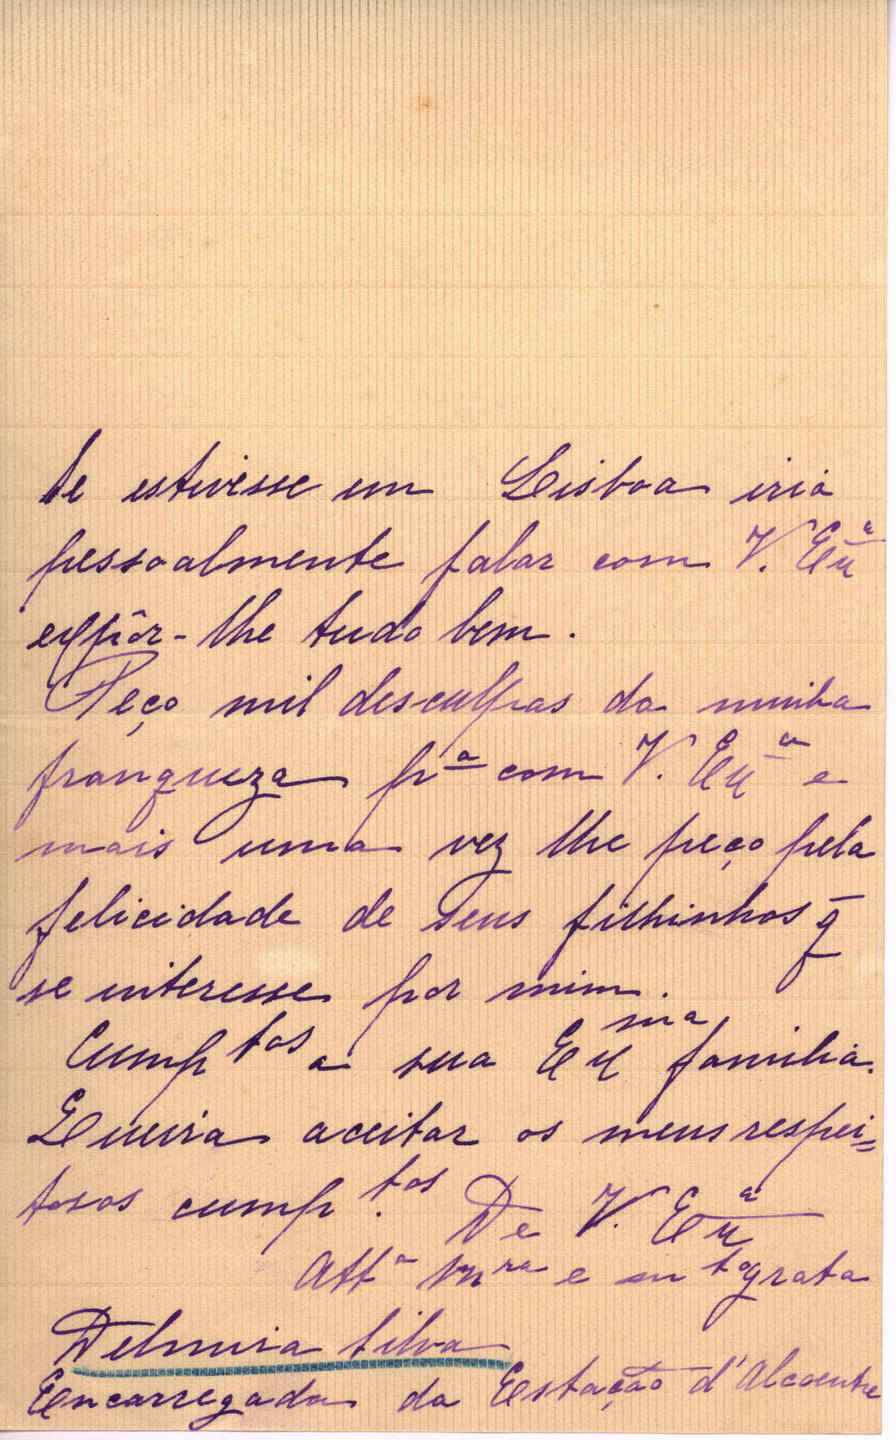 Se estivesse em Lisboa iria
pessoalmente falar com V. Exª
expôr-lhe tudo bem.
Peço mil desculpas da minha
franqueza prª com V. Exª e
mais uma vez lhe peço pela
felicidade de seus filhinhos q̄
se interesse por mim.
Cumptos a sua Exma familia.
Queira aceitar os meus respei=
tosos cump.tos De V. Exª
Attª Vnra e mto grata
Delmira Silva
Encarregada da Estação d'Alcoentre